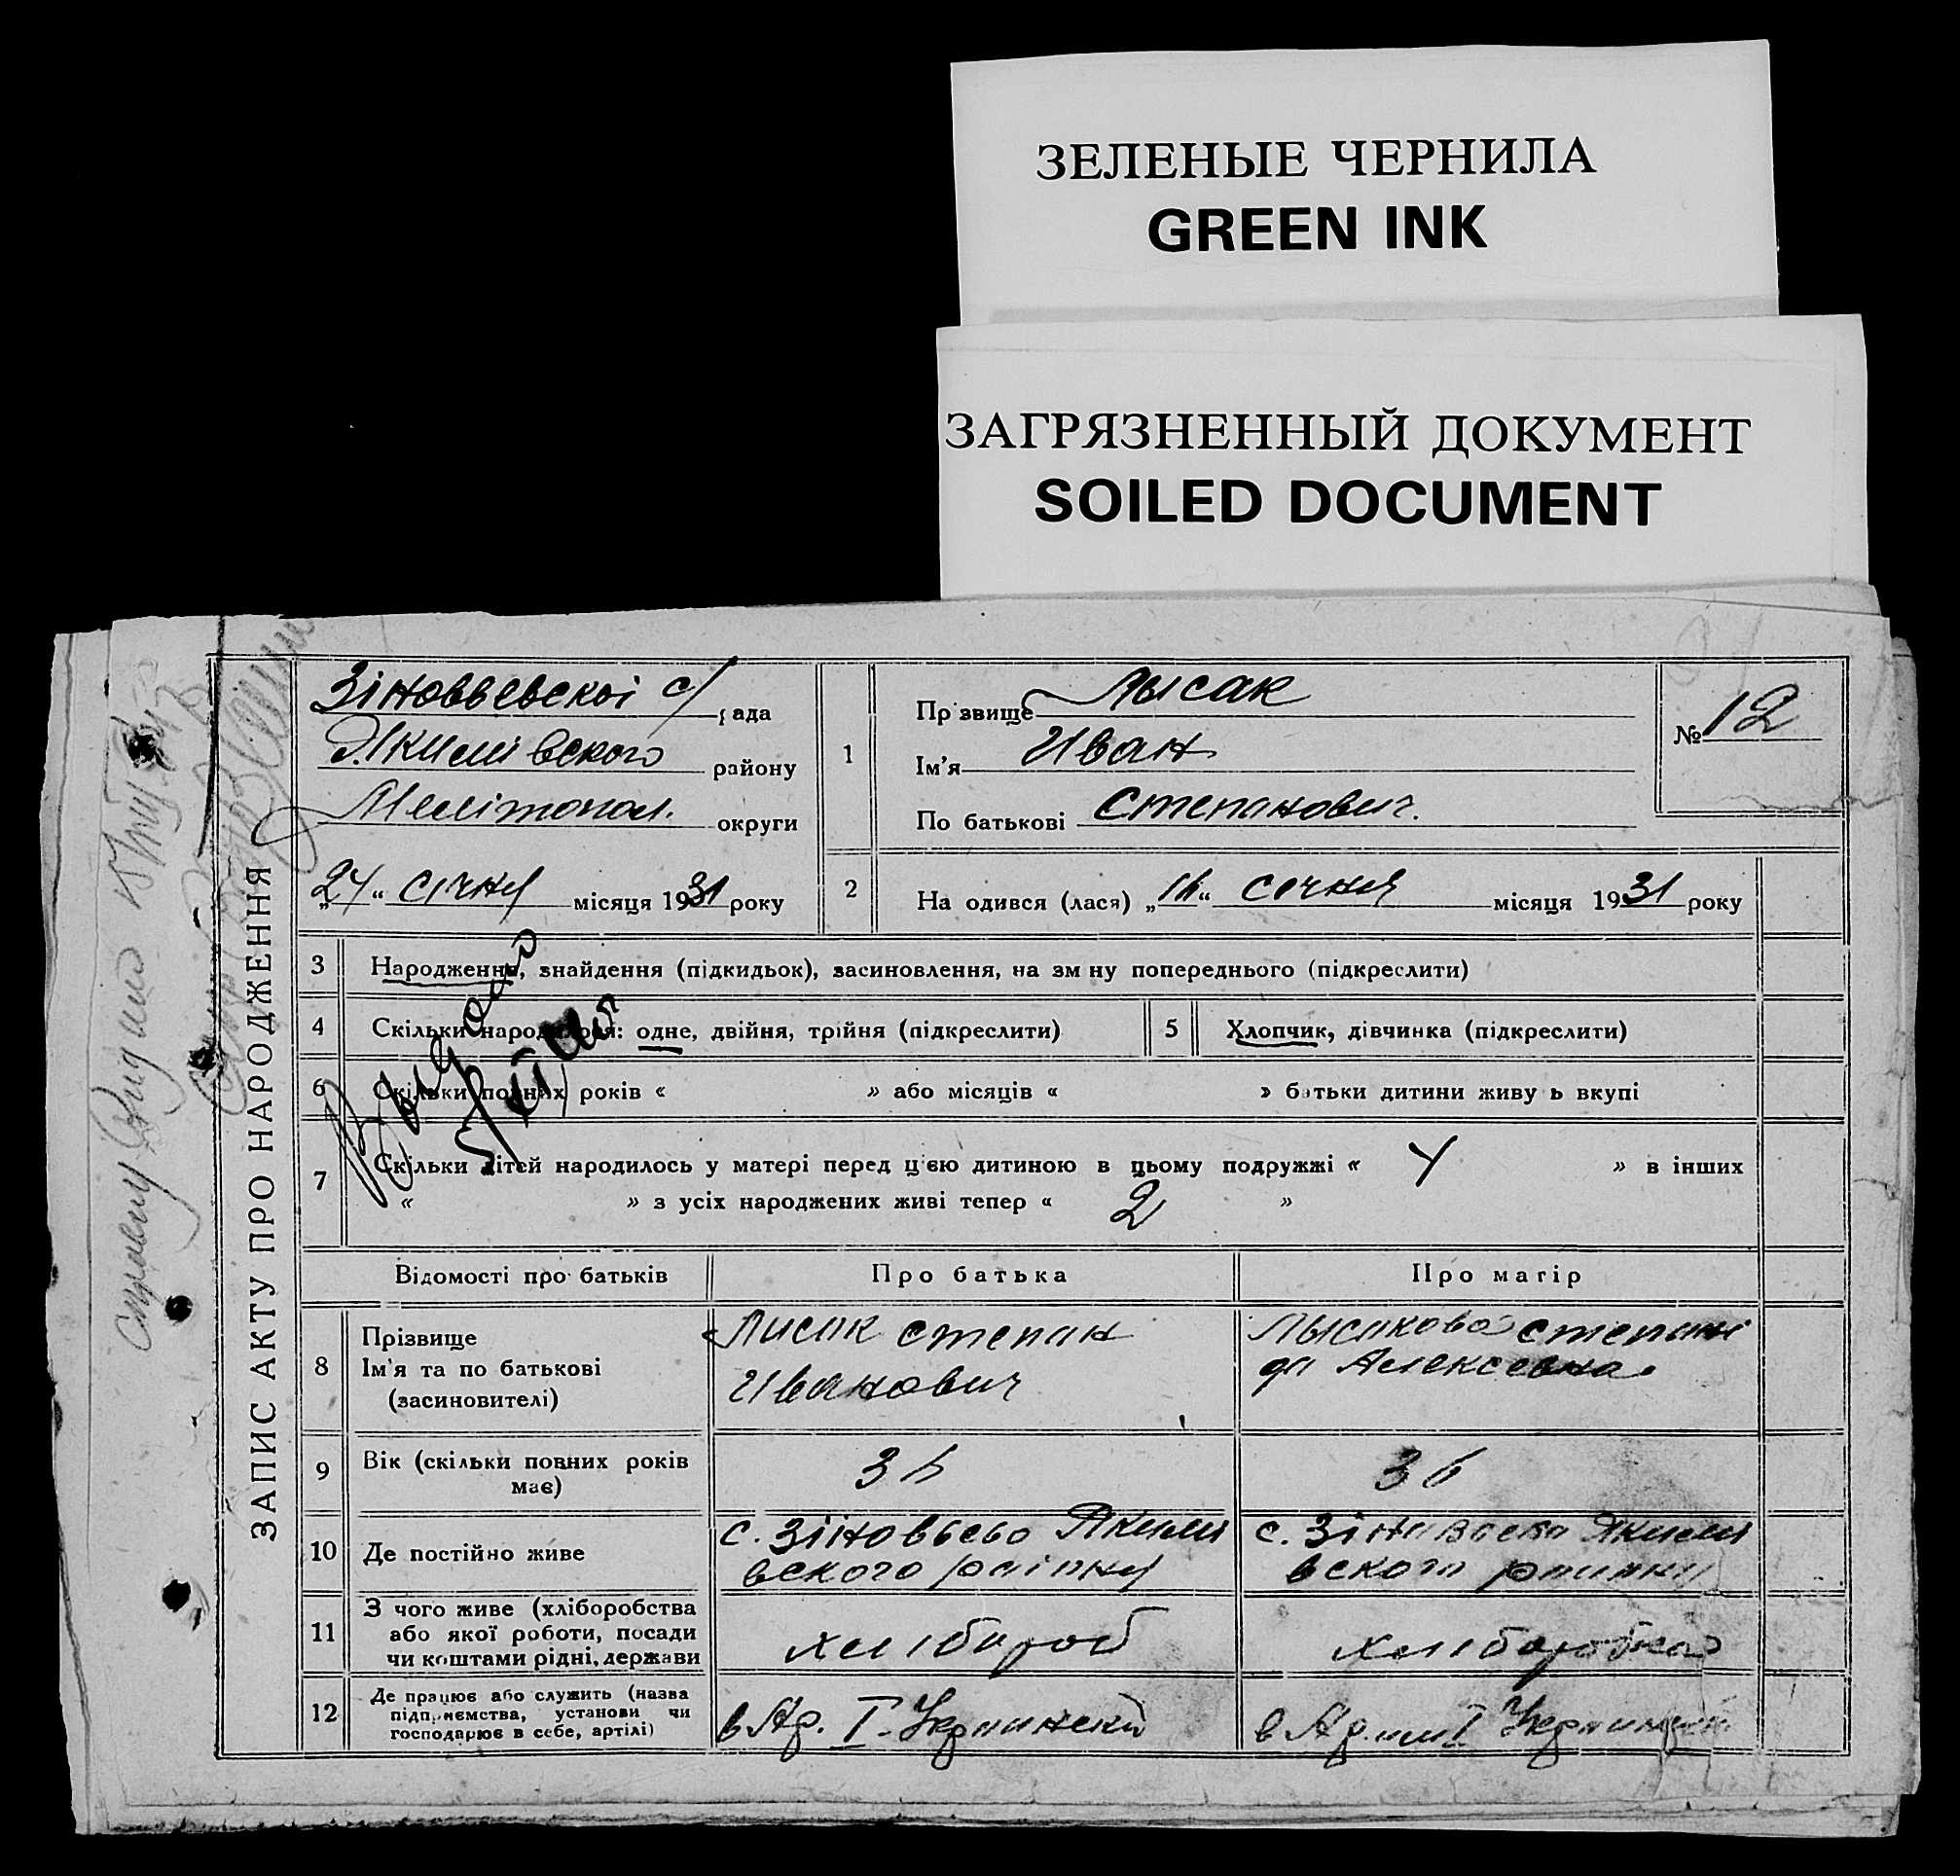 ЗЕЛЕНЫЕ ЧЕРНИЛА
GREEN INK
ЗАГРЯЗНЕННЫЙ ДОКУМЕНТ
SOILED DOCUMENT
ЗАПИС АКТУ ПРО НАРОДЖЕННЯ
Зіновьевскоі с/рада
Якимівского району
Мелітопол. округи
„24“ січня місяця 1931 року
№ 12
1 Прізвище Лысак
Ім'я Иван
По батькові Степанович.
2 На одився (лася) „16“ січня місяця 1931 року
3 Народження, знайдення (підкидьок), засиновлення, на зм ну попереднього (підкреслити)
4 Скільки народилося: одне, двійня, трійня (підкреслити)
5 Хлопчик, дівчинка (підкреслити)
6 Скільки повних років « » або місяців « » батьки дитини живу ь вкупі
7 Скільки дітей народилось у матері перед цією дитиною в цьому подружжі « 4 » в інших
« » з усіх народжених живі тепер « 2 »
Відомості про батьків Про батька Про матір
8 Прізвище
Ім'я та по батькові
(засиновителі)
Лисак Степан
Иванович
Лысакова Степані
да Алексевна
9 Вік (скільки повних років
має)
36
36
10 Де постійно живе
с. Зіновьево Якими
вского раіону
с. Зіновьево Якими
вского
11 З чого живе (хліборобства
або якої роботи, посади
чи коштами рідні, держави
хлібороб
хліборобка
12 Де працює або служить (назва
підприємства, установи чи
господарює в себе, артілі)
в Ар. І-
в І